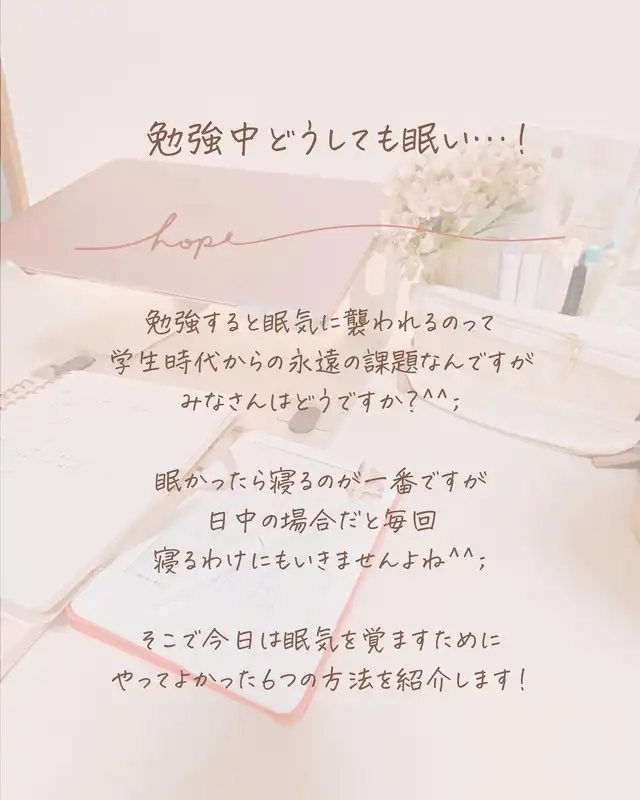 勉強中どうしても眠い…!
hope
勉強すると眠気に襲われるのって
学生時代からの永遠の課題なんですが
みなさんはどうですか?^^;
眠かったら寝るのが一番ですが
日中の場合だと毎回
寝るわけにもいきませんよね^^;
そこで今日は眠気を覚ますために
やってよかった6つの方法を紹介します!